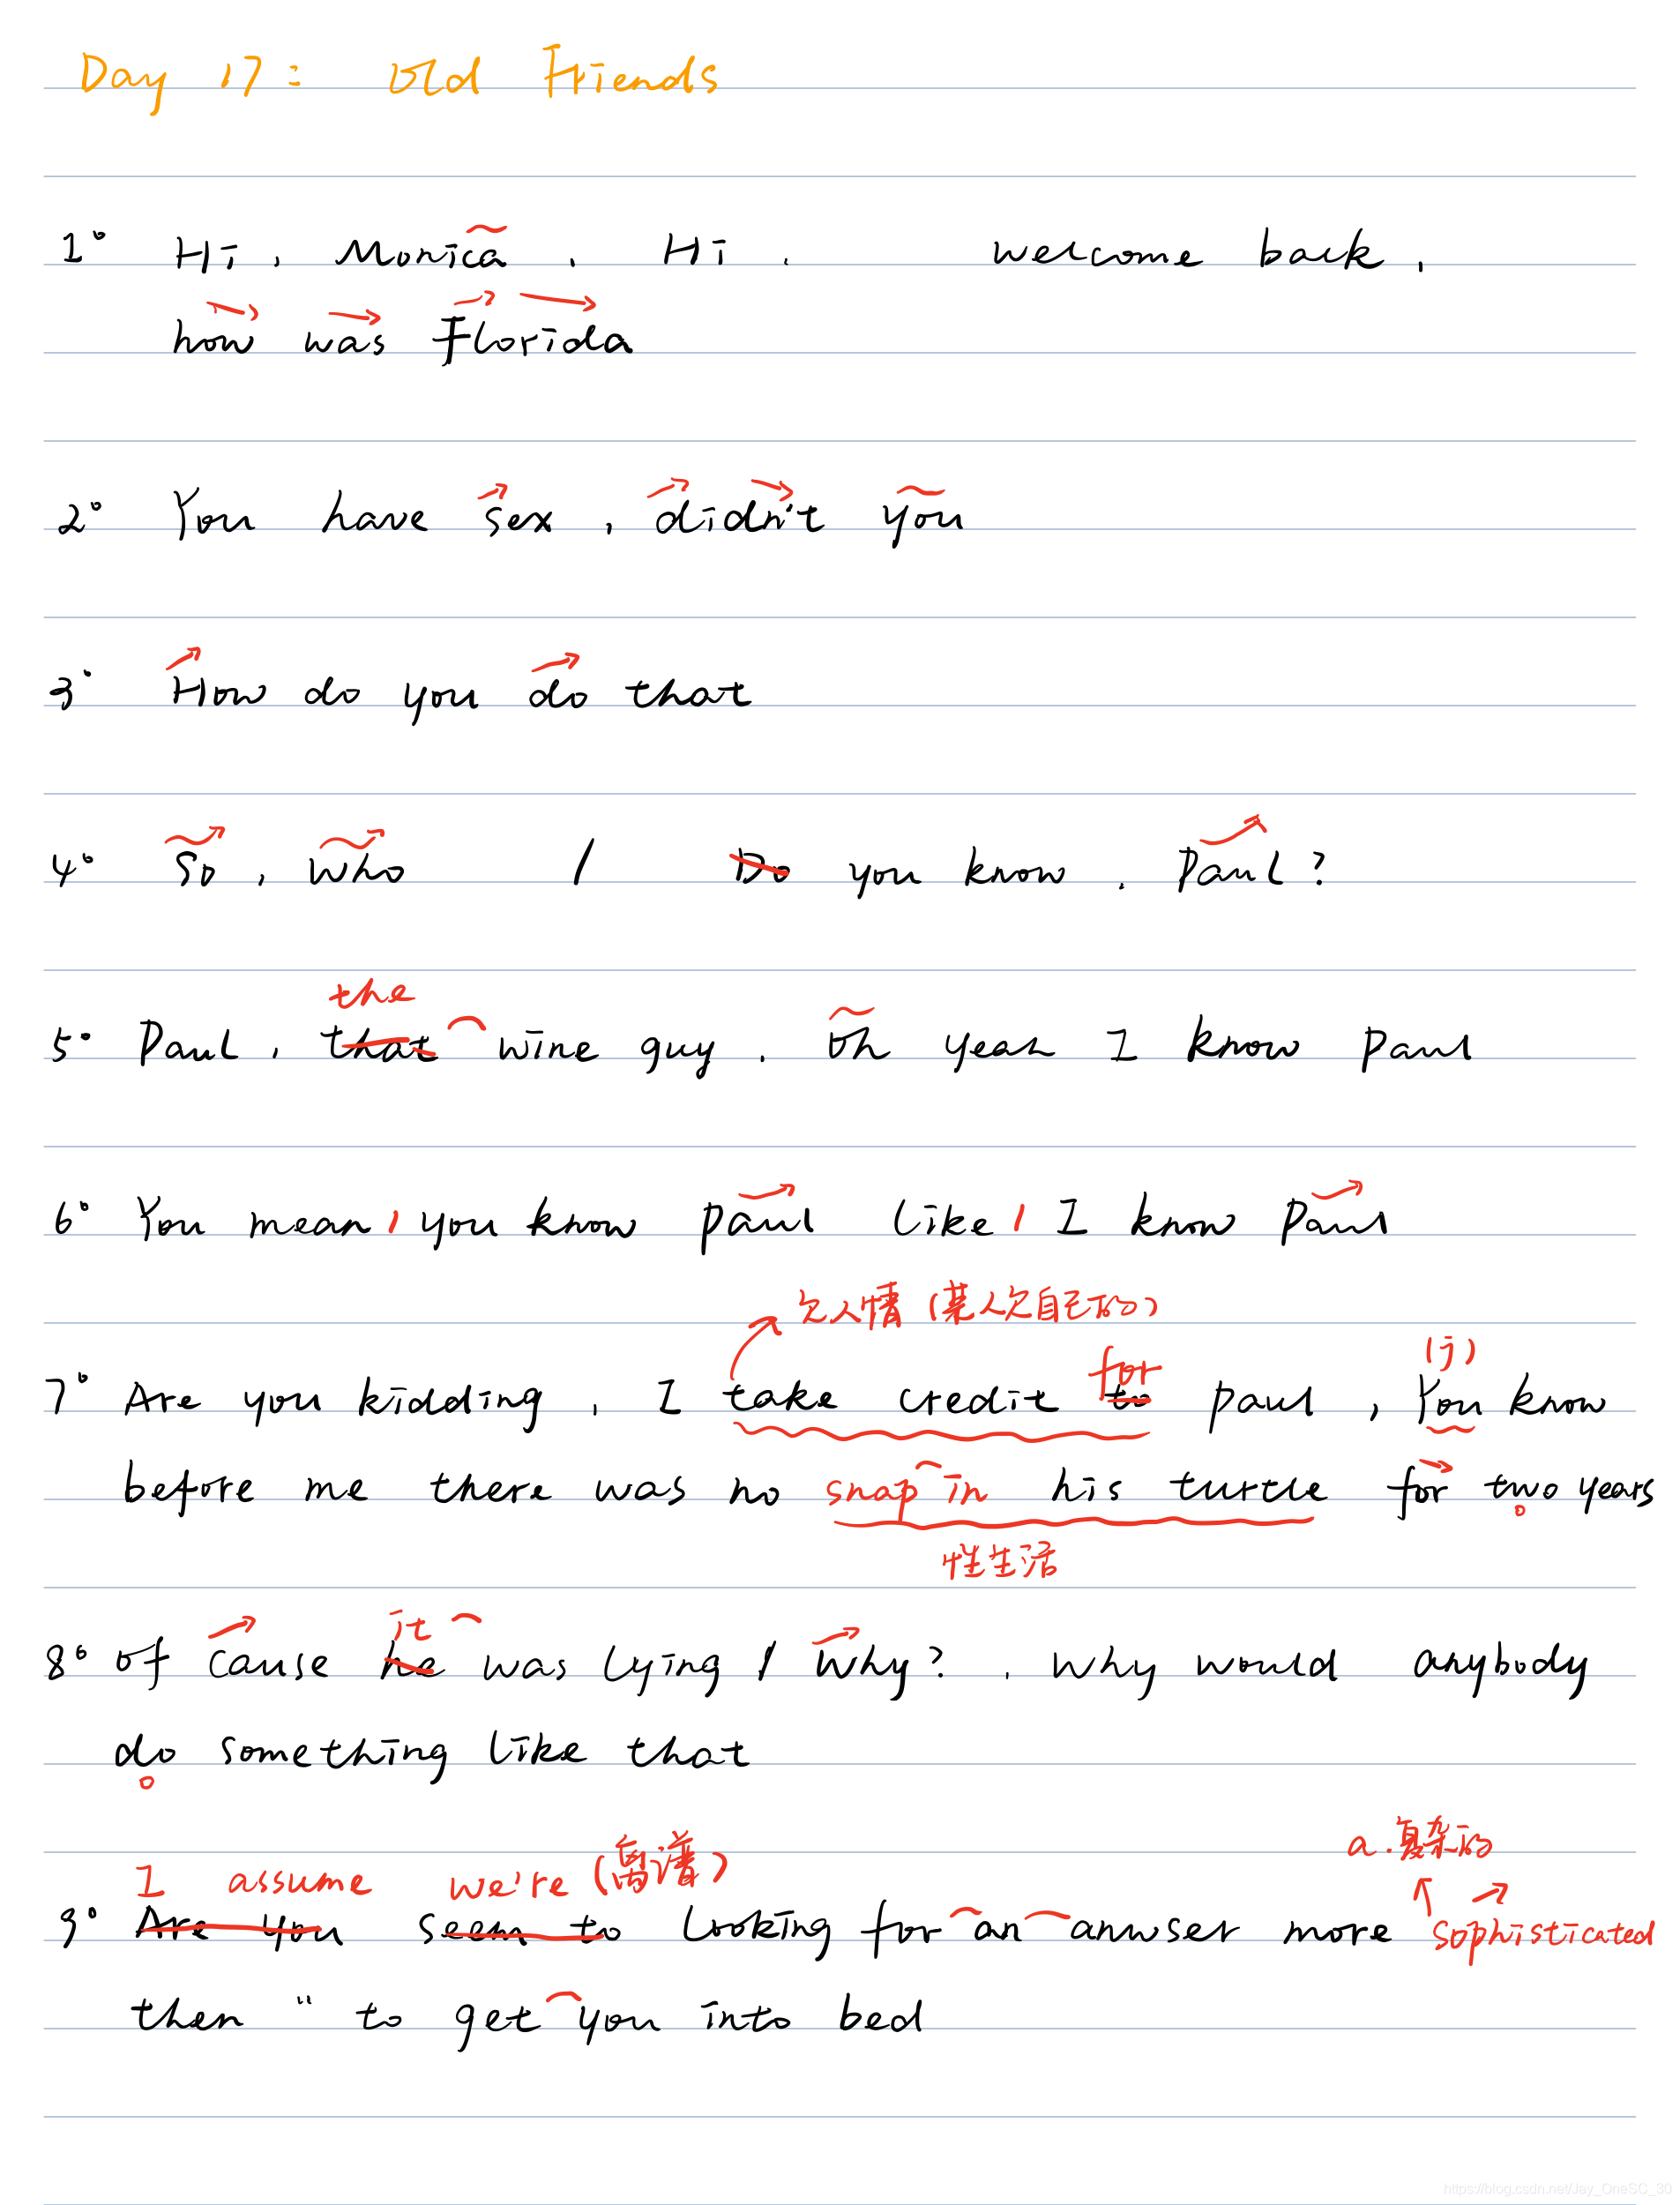 Day 17: Old Friends
1° Hi, Monica, Hi, welcome back,
how was Florida
2° You have sex, didn't you
3° How do you do that
4° So, who / Do you know, Paul?
the
5° Paul, that wine guy, oh yeah I know Paul
6° You mean / you know Paul like / I know Paul
欠人情 (某人欠自己的)
for (j)
7° Are you kidding, I take credit to Paul, You know
before me there was no snap in his turtle for two years
性生活
it
8° of cause he was lying / Why?, why would anybody
do something like that
a.复杂的
I assume we're (离谱)
9° Are you seem to looking for an anwser more sophisticated
then " to get you into bed
https://blog.csdn.net/Jay_OneSC_30